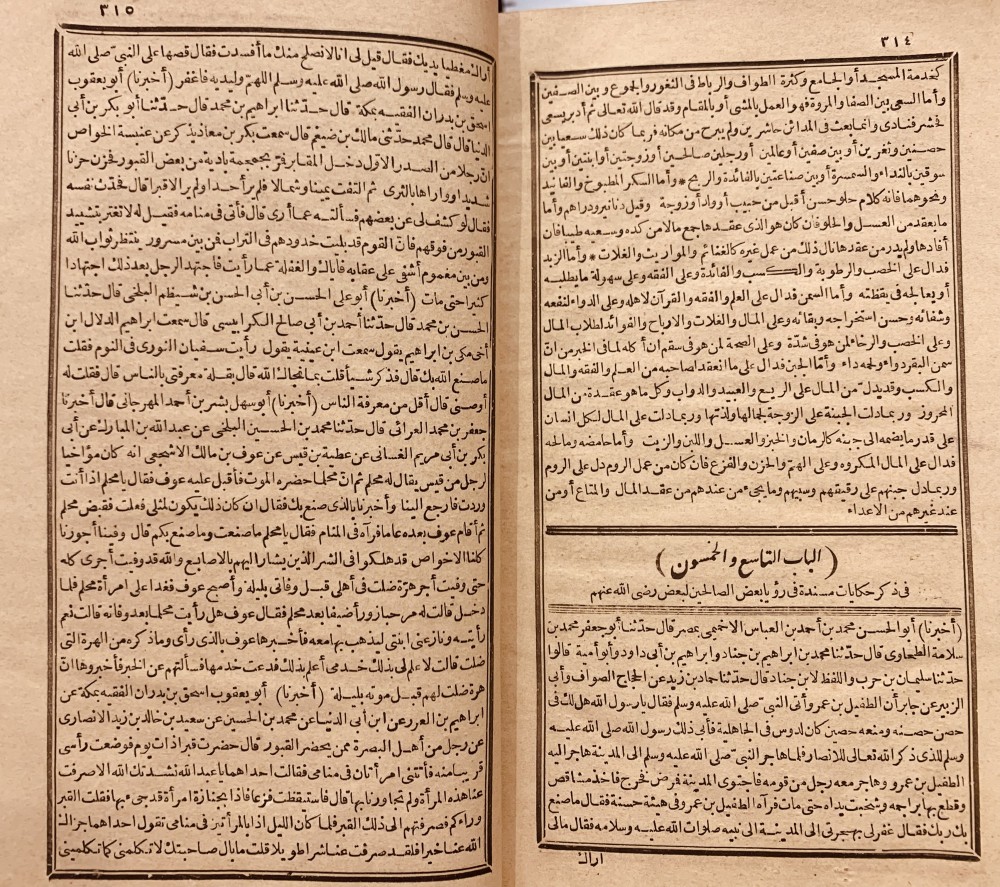 ٣١٤
كخدمة المسجد أو الجامع وكثرة الطواف والرباط فى الثغور والجموع وبين الصفين
وأما السعى بين الصفا والمروة فهو العمل بالمشى أو بالمقام وقد قال الله تعالى ثم أدبر يسعى
فحشر فنادى وانما بعث فى المدائن حاشرين ولم يبرح من مكانه فربما كان ذلك سعيا بين
حصنين وثغرين أو بين صفين أو عالمين أو رجلين صالحين أو زوجتين أو ابنتين أو بين
سوقين بالنداء والسمسرة أو بين صناعتين بالفائدة والربح * وأما السكر المطبوخ والفانيد
ونحوهما فانه كلام حلو حسن أو قبل من حبيب أو ولد أو زوجة وقيل دنانير ودراهم وأما
ما يعقد من العسل والحلو فان كان هو الذى عقدها جمع مالا من كده وسعيه طيبا فان
أفادها ولم يدر من عقدها نال ذلك من عمل غيره كالغنائم والمواريث والغلات * وأما الزبد
فدال على الخصب والرطوبة والكسب والفائدة وعلى الفقه وعلى سهولة ما يطلبه
أو يعالجه فى يقظته وأما السمن فدال على العلم والفقه والقرآن لاهله وعلى الدواء لنفعه
وشفائه وحسن استخراجه وبقائه وعلى المال والغلات والارباح والفوائد لطلاب المال
وعلى الخصب والرخاء لمن هو فى شدة وعلى الصحة لمن هو فى سقم ان أكله لما فى الخبر من ان
سمن البقر دواء ولحمه داء وأما الجبن فدال على ما انعقد لصاحبه من العلم والفقه والمال
والكسب وقد يدل من المال على الربع والعبيد والدواب وكل ما هو عقدة من المال
المحروز وربما دلت الجبنة على الزوجة لجمالها ولذتها وربما دلت على المال لكل انسان
على قدر ما يضمه الى جبنه كالرمان والخبز والعسل واللبن والزيت وأما حامضه ومالحه
فدال على المال المكروه وعلى الهم والحزن والفزع فان كان من عمل الروم دل على الروم
وربما دل جبنهم على رقيقهم وسبيهم وما يجىء من عندهم من عقد المال والمتاع أو من
عند غيرهم من الاعداء
(الباب التاسع والخمسون)
فى ذكر حكايات مسندة فى رؤيا بعض الصالحين لبعض رضى الله عنهم
(أخبرنا) أبو الحسن محمد بن أحمد بن العباس الاخميمى بمصر قال حدثنا أبو جعفر محمد بن
سلامة الطحاوى قال حدثنا محمد بن ابراهيم بن جناد وابراهيم بن أبى داود وأبو أمية قالوا
حدثنا سليمان بن حرب واللفظ لابن جناد قال حدثنا حماد بن زيد عن الحجاج الصواف وأبى
الزبير عن جابر أن الطفيل بن عمرو أتى النبى صلى الله عليه وسلم فقال يا رسول الله هل لك فى
حصن حصينة ومنعه حصين كان لدوس فى الجاهلية فأبى ذلك رسول الله صلى الله عليه
وسلم للذى ذكر الله تعالى للانصار فلما هاجر النبى صلى الله عليه وسلم الى المدينة هاجر اليه
الطفيل بن عمرو وهاجر معه رجل من قومه فاجتوى المدينة فمرض فخرج فأخذ مشاقص
وقطع بها براجمه وشخبت يداه حتى مات فرآه الطفيل بن عمرو فى هيئة حسنة فقال ما صنع
بك ربك فقال غفر لى بهجرتى الى المدينة الى نبيه صلوات الله عليه وسلامه فقال مالى
أراك
٣١٥
أراك مغطيا يديك فقال قيل لى انا لا نصلح منك ما أفسدت فقال قصها على النبى صلى الله
عليه وسلم فقال رسول الله صلى الله عليه وسلم اللهم وليديه فاغفر (أخبرنا) أبو يعقوب
اسحق بن بدران الفقيه بمكة قال حدثنا ابراهيم بن محمد قال حدثنا أبو بكر بن أبى
الدنيا قال قال محمد حدثنى مالك بن ضيغم قال سمعت بكر بن معاذ يذكر عن عنبسة الخواص
ان رجلا من الصدر الاول دخل المقابر فمر بجمجمة بادية من بعض القبور فحزن حزنا
شديدا وواراها بالثرى ثم التفت يمينا وشمالا فلم ير أحدا ولم ير الا قبرا قال فحدث نفسه
فقال لو كشف لى عن بعضهم فسألته عما أرى قال فأتى فى منامه فقيل له لا تغتر بتشييد
القبور من فوقهم فان القوم قد بليت خدودهم فى التراب فمن بين مسرور ينتظر ثواب الله
ومن بين مغموم أشفى على عقابه فاياك والغفلة عما رأيت فاجتهد الرجل بعد ذلك اجتهادا
كثيرا حتى مات (أخبرنا) أبو على الحسن بن أبى الحسن بن شيظم البلخى قال حدثنا
الحسن بن محمد قال حدثنا أحمد بن أبى صالح الكرابيسى قال سمعت ابراهيم الدلال ابن
أخى مكى بن ابراهيم يقول سمعت ابن عيينة يقول رأيت سفيان الثورى فى النوم فقلت
ما صنع الله بك قال فذكر شيأ قلت بما نجاك الله قال بقلة معرفتى بالناس قال فقلت له
أوصنى قال أقل من معرفة الناس (أخبرنا) أبو سهل بشر بن أحمد المهرجانى قال أخبرنا
جعفر بن محمد العرائى قال حدثنا محمد بن الحسين البلخى عن عبد الله بن المبارك عن أبى
بكر بن أبى مريم الغسانى عن عطية بن قيس عن عوف بن مالك الاشجعى انه كان مؤاخيا
لرجل من قيس يقال له محلم ثم ان محلما حضره الموت فأقبل عليه عوف فقال يا محلم اذا أنت
وردت فارجع الينا وأخبرنا بالذى صنع بك فقال ان كان ذلك يكون لمثلى فعلت فقبض محلم
ثم أقام عوف بعده عاما فرآه فى المنام فقال يا محلم ما صنعت وما صنع بكم قال وفينا أجورنا
كلنا الا خواص قد هلكوا فى الشر الذين يشار اليهم بالاصابع والله قد وفيت أجرى كله
حتى وفيت أجر هرة ضلت فى أهلى قبل وفاتى بليلة وأصبح عوف فغدا على امرأة محلم فلما
دخل قالت له مرحبا زور أضيفا بعد محلم فقال عوف هل رأيت محلما بعد وفاته قالت نعم
رأيته ونازعنى ابنتى ليذهب بها معه فأخبرها عوف بالذى رأى وما ذكره من الهرة التى
ضلت قالت لا علم لى بذلك خدمى أعلم بذلك فدعت خدمها فسألتهم عن الخبر فأخبروها ان
هرة ضلت لهم قبل موته بليلة (أخبرنا) أبو يعقوب اسحق بن بدران الفقيه بمكة عن
ابراهيم بن العرر عن ابن أبى الدنيا عن محمد بن الحسين عن سعيد بن خالد بن زيد الانصارى
عن رجل من أهل البصرة ممن يحضر القبور قال حضرت قبرا ذات يوم فوضعت رأسى
قريبا منه فأتتنى امرأتان فى منامى فقالت احداهما يا عبد الله نشدتك الله الا صرفت
عنا هذه المرأة ولم تجاورنا بها قال فاستيقظت فزعا فاذا بجنازة امرأة قد جىء بها فقلت القبر
وراءكم فصرفتهم الى ذلك القبر فلما كان الليل اذا بالمرأتين فى منامى تقول احداهما جزاك
الله عنا خيرا فلقد صرفت عنا شرا طويلا قلت ما بال صاحبتك لا تكلمنى كما تكلمينى